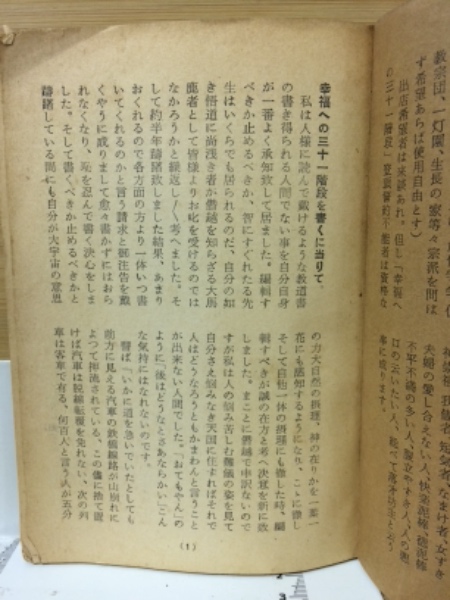 教宗団、一灯園、生長の家等々宗派を問は
ず希望あらば使用自由とす)
出店希望者は来談あれ。但し「幸福へ
の三十一階段」登頂誓約不能者は資格な
夫婦の愛し合えない人、
不平不満の多い人、腹立やすき人、人の
幸福への三十一階段を書くに当りて、
私は人様に読んで戴けるような教道書
の書き得られる人間でない事を自分自身
が一番よく承知致して居ました。編輯す
べきか止めるべきか、智にすぐれたる先
生はいくらでも居られるのだ、自分の如
き悟道に尚浅き者が僭越を知らざる大馬
鹿者として皆様よりお叱を受けるのでは
なかろうかと繰返し〱考へました。そ
して約半年躊躇致しました結果、あまり
おくれるので各方面の方より一体いつ書
いてくれるのかと言う請求と御注告を戴
くやうに成りまして愈々書かずにはおら
れなくなり、恥を忍んで書く決心をしま
した。そして書くべきか止めるべきかと
躊躇している間にも自分が大宇宙の意思
の力大自然の摂理、神の在りかを一葉一
花にも感知するようになり、こゝに徹し
そして自他一体の摂理にも徹した時、編
輯すべきが誠の在方と考へ決意を新に致
しました。まことに僭越で申訳ないので
すが私は人の悩み苦しむ難儀の姿を見て
自分さえ悩みなき天国に住まればそれで
人はどうなろうともかまわんと言うこと
が出来ない人間でした。「おてもやん」の
ように「後はどうなとさあならかい」こん
な気持にはなれないのです。
譬ば「いかに道を急いでいたとしても
前方に見える汽車の鉄橋線路が山崩れに
よつて押流されている、この儘に捨て置
けば汽車は脱線転覆を免れない、次の列
車は客車で有る、何百人と言う人が五分
(1)